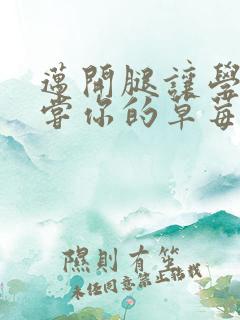 邁開腿讓學
當你的草莓
隰則有笑
未经同意禁止转载